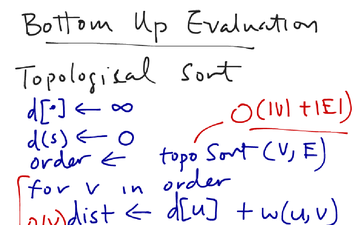 Bottom Up Evaluation
Topological Sort
d[•] ← ∞
d(s) ← 0
O(|V| + |E|)
order ← topo Sort (V, E)
for v in order
O(V) dist ← d[u] + w(u,v)